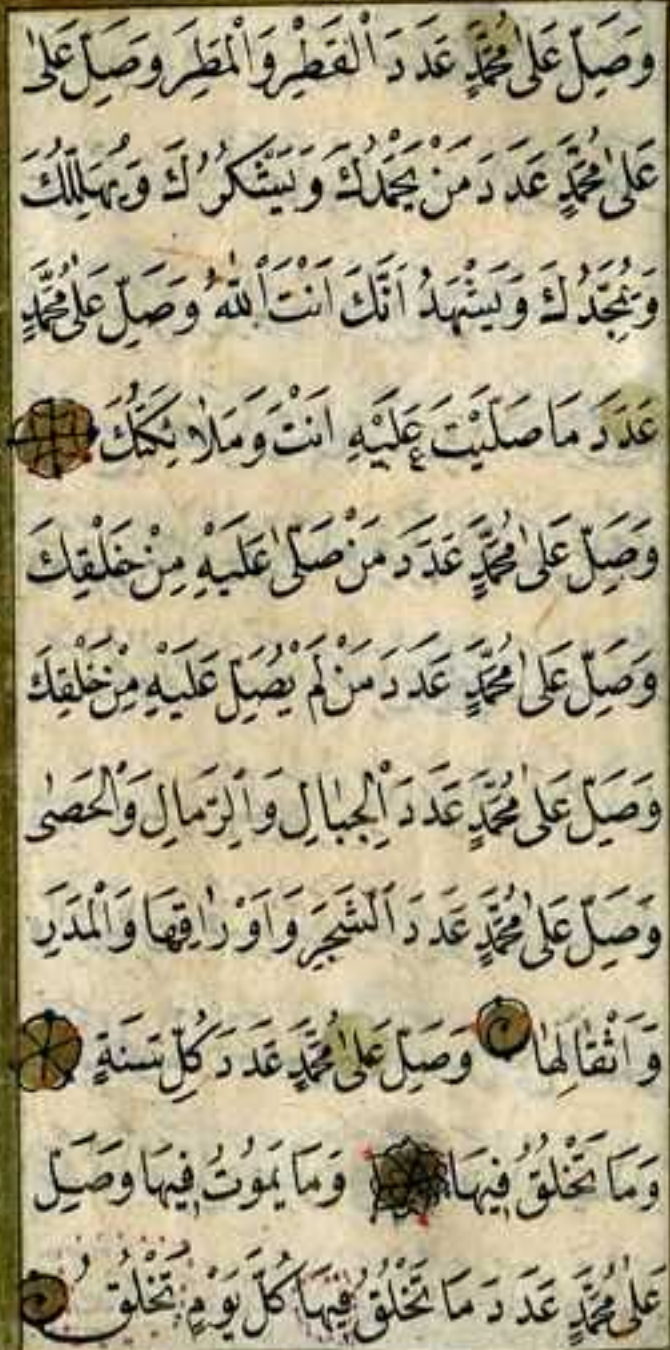 وَصَلِّ عَلٰى مُحَمَّدٍ عَدَدَ اْلقَطْرِ وَاْلمَطَرِ وَصَلِّ عَلٰى
عَلٰى مُحَمَّدٍ عَدَدَ مَنْ يَحْمَدُكَ وَيَشْكُرُكَ وَيُهَلِّلُكَ
وَيُمَجِّدُكَ وَيَشْهَدُ اَنَّكَ اَنْتَ اللّٰهُ وَصَلِّ عَلٰى مُحَمَّدٍ
عَدَدَ مَا صَلَّيْتَ عَلَيْهِ اَنْتَ وَمَلَائِكَتُكَ
وَصَلِّ عَلٰى مُحَمَّدٍ عَدَدَ مَنْ صَلّٰى عَلَيْهِ مِنْ خَلْقِكَ
وَصَلِّ عَلٰى مُحَمَّدٍ عَدَدَ مَنْ لَمْ يُصَلِّ عَلَيْهِ مِنْ خَلْقِكَ
وَصَلِّ عَلٰى مُحَمَّدٍ عَدَدَ اْلجِبَالِ وَالرِّمَالِ وَاْلحَصٰى
وَصَلِّ عَلٰى مُحَمَّدٍ عَدَدَ الشَّجَرِ وَاَوْرَاقِهَا وَاْلمَدَرِ
وَاَثْقَالِهَا وَصَلِّ عَلٰى مُحَمَّدٍ عَدَدَ كُلِّ سَنَةٍ
وَمَا تَخْلُقُ فِيهَا وَمَا يَمُوتُ فِيهَا وَصَلِّ
عَلٰى مُحَمَّدٍ عَدَدَ مَا تَخْلُقُ فِيهَا كُلَّ يَوْمٍ تَخْلُقُ